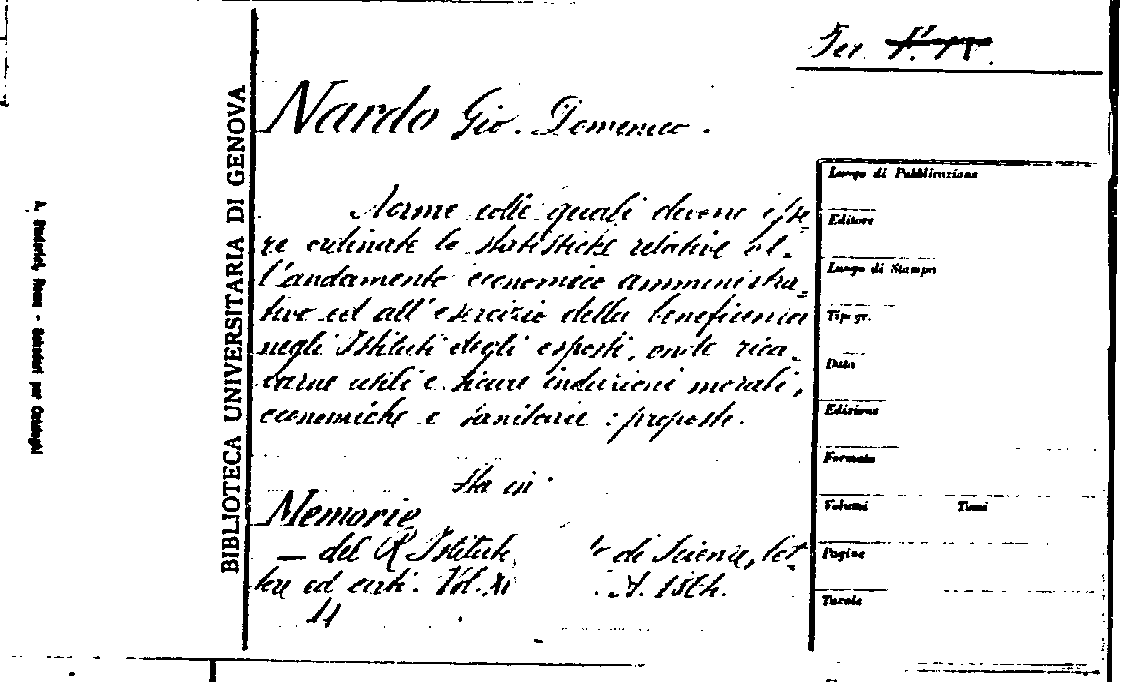 Ser.
Nardo Gio. Domenico.
Norme colle quali devono esse=
re ordinate le statistiche relative al=
l'andamento economico amministra=
tivo ed all'esercizio della beneficenza
negli Istituti degli esposti, onde rica=
varne utili e sicure induzioni morali,
economiche e sanitarie: proposte.
Sta in
Memorie
— del R. Istituto di Scienze, let=
tere ed arti. Vol. XI A. 1864.
11
BIBLIOTECA UNIVERSITARIA DI GENOVA
Roma - Schedari per Cataloghi
Luogo di Pubblicazione
Editore
Luogo di Stampa
Tipogr.
Data
Edizione
Formato
Volumi Tomi
Pagine
Tavole